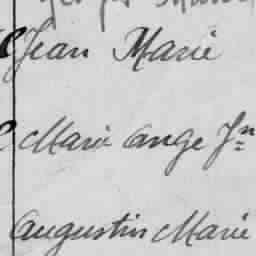 Jean Marie
Marie Ange Jn
Augustin Marie